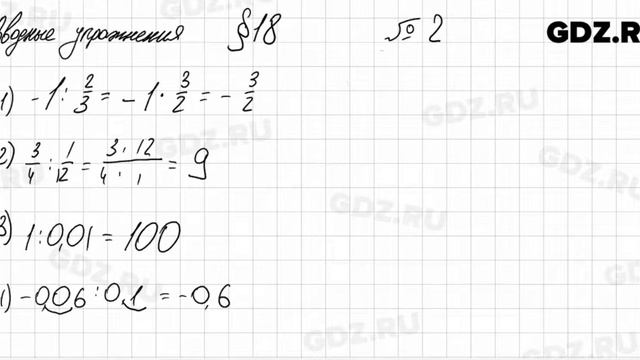 Вводные упражнения §18 № 2 GDZ.R
1) -1 : 2/3 = -1 · 3/2 = - 3/2
2) 3/4 : 1/12 = 3 · 12 / 4 · 1 = 9
3) 1 : 0,01 = 100
4) -0,06 : 0,1 = -0,6
GDZ.RU
GDZ.RU
GDZ.RU
GDZ.RU
GDZ.RU
GDZ.RU